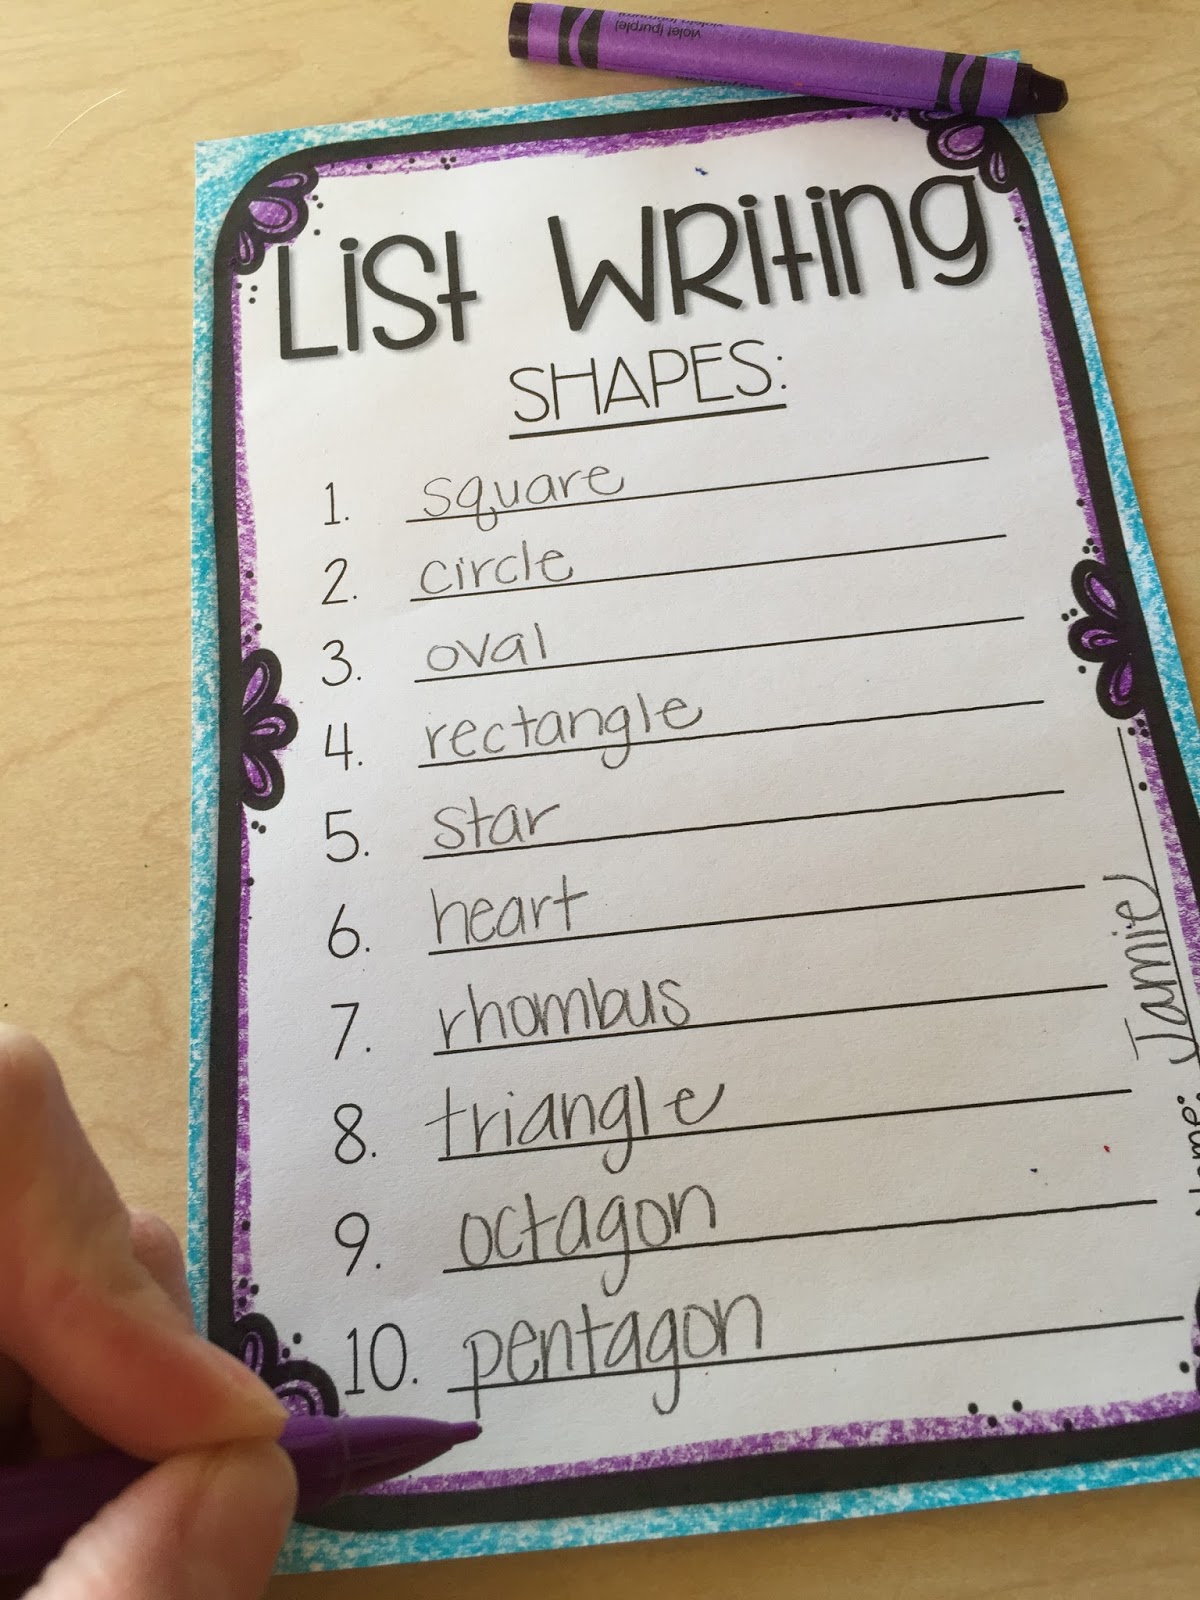 violet (purple)
List Writing
SHAPES:
1. square
2. circle
3. oval
4. rectangle
5. star
6. heart
7. rhombus
8. triangle
9. octagon
10. pentagon
Name: Jamie